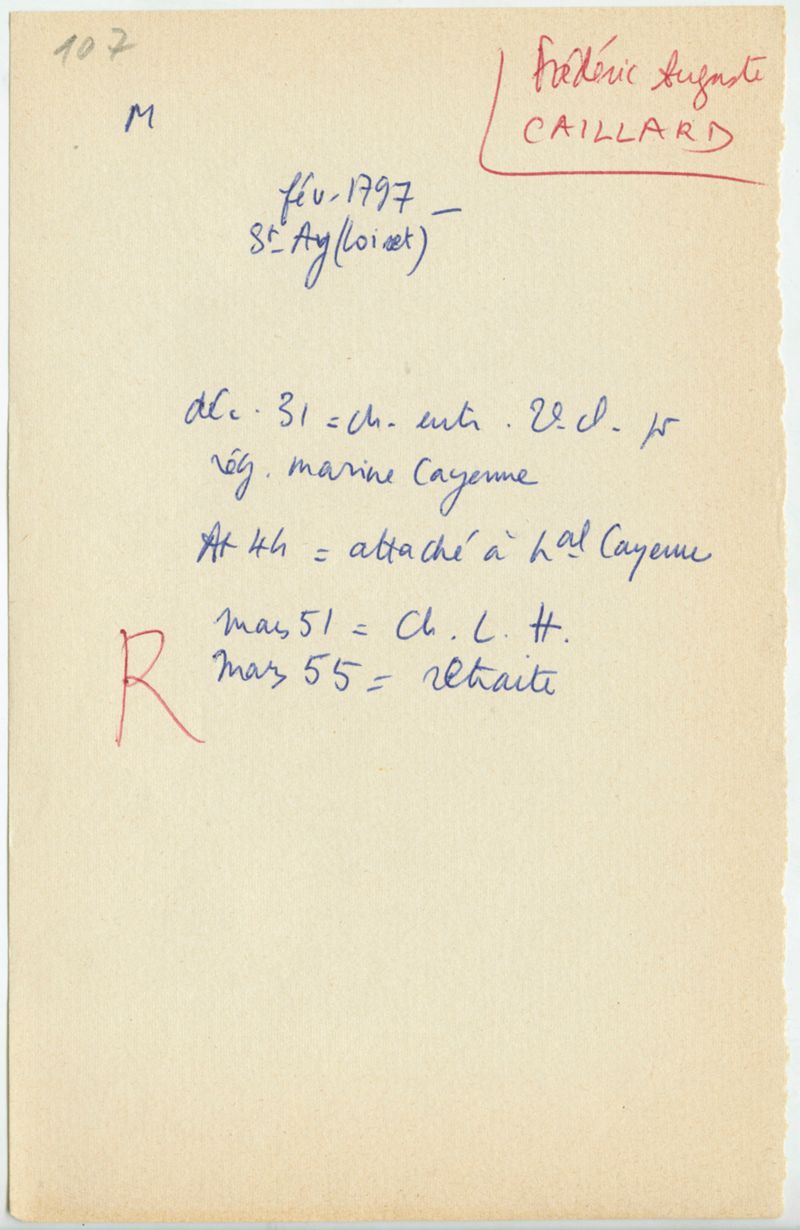 107
Frédéric Auguste
CAILLARD
M
fév. 1797 -
St-Ay (Loiret)
déc. 31 = ch. entr. 2e cl. pr
rég. marine Cayenne
At 44 = attaché à hal Cayenne
mars 51 = Ch. L. H.
R
Mars 55 = retraite